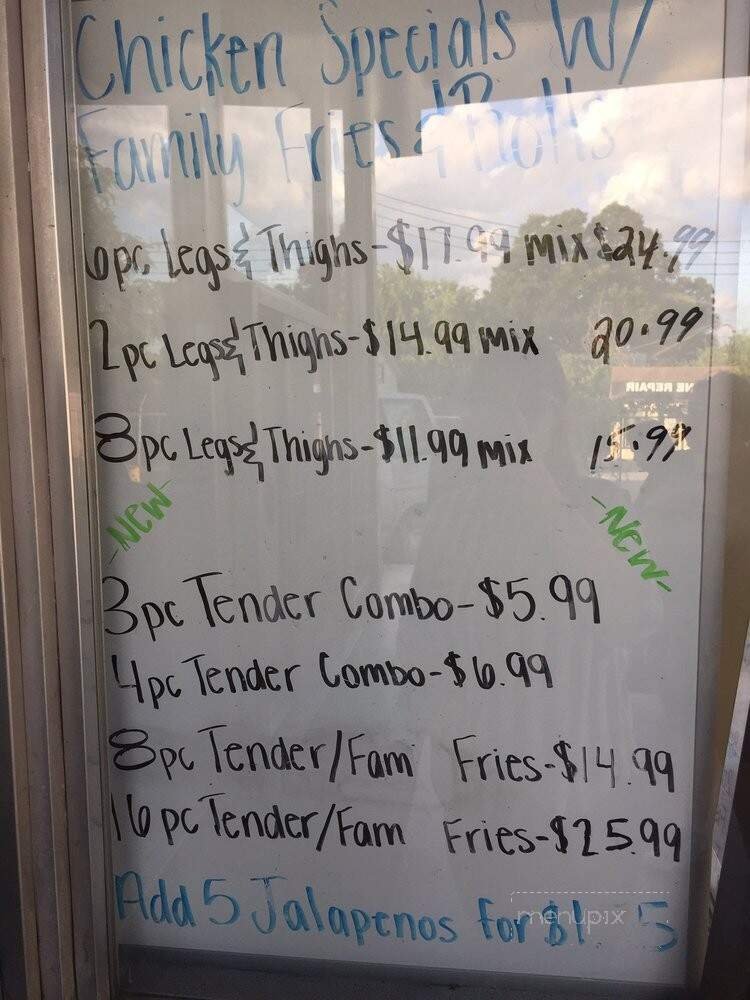 Chicken Specials W/
Family Fries & Rolls
6pc Legs & Thighs - $17.99 mix $24.99
2pc Legs & Thighs - $14.99 mix 20.99
8pc Legs & Thighs - $11.99 mix 15.99
-New-
-New-
3pc Tender Combo - $5.99
4pc Tender Combo - $6.99
8pc Tender/Fam Fries - $14.99
16pc Tender/Fam Fries - $25.99
Add 5 Jalapenos for $1 5
menupix
NE REPAIR